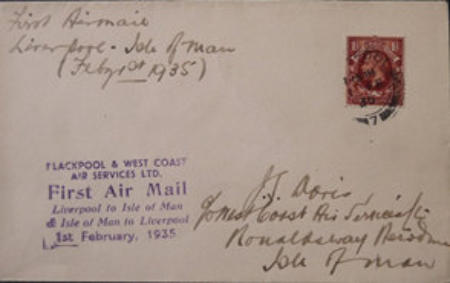 First Airmail
Liverpool - Isle of Man
(Feby 1st 1935)
BLACKPOOL & WEST COAST
AIR SERVICES LTD.
First Air Mail
Liverpool to Isle of Man
& Isle of Man to Liverpool
1st February, 1935
J. J. Davis
West Coast Air Services
Ronaldsway
Isle of Man